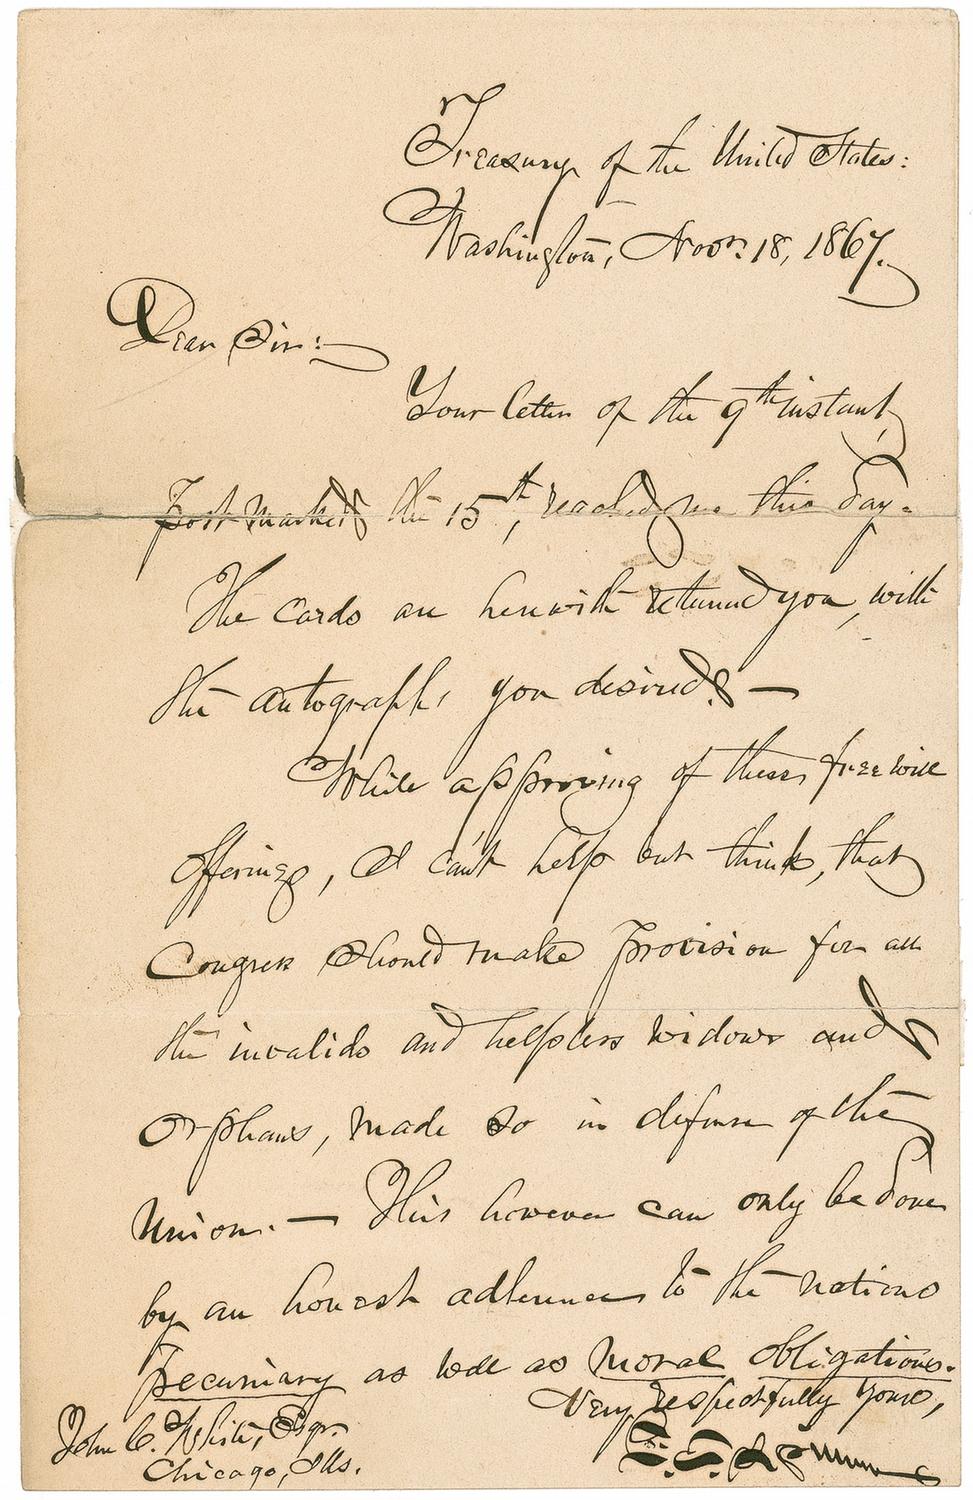 Treasury of the United States:
Washington, Novr. 18, 1867.
Dear Sir:
Your letter of the 9th instant,
Post Marked the 15th, reached me this day.
The cards are herewith returned you, with
the autographs you desired. —
While approving of these free will
offerings, I can't help but think, that
Congress should make provision for all
the invalids and helpless widows and
orphans, made so in defense of the
Union. — This however can only be done
by an honest adherence to the nations
pecuniary as well as moral obligations.
Very respectfully yours,
John C. White, Esqr.
Chicago, Ills.